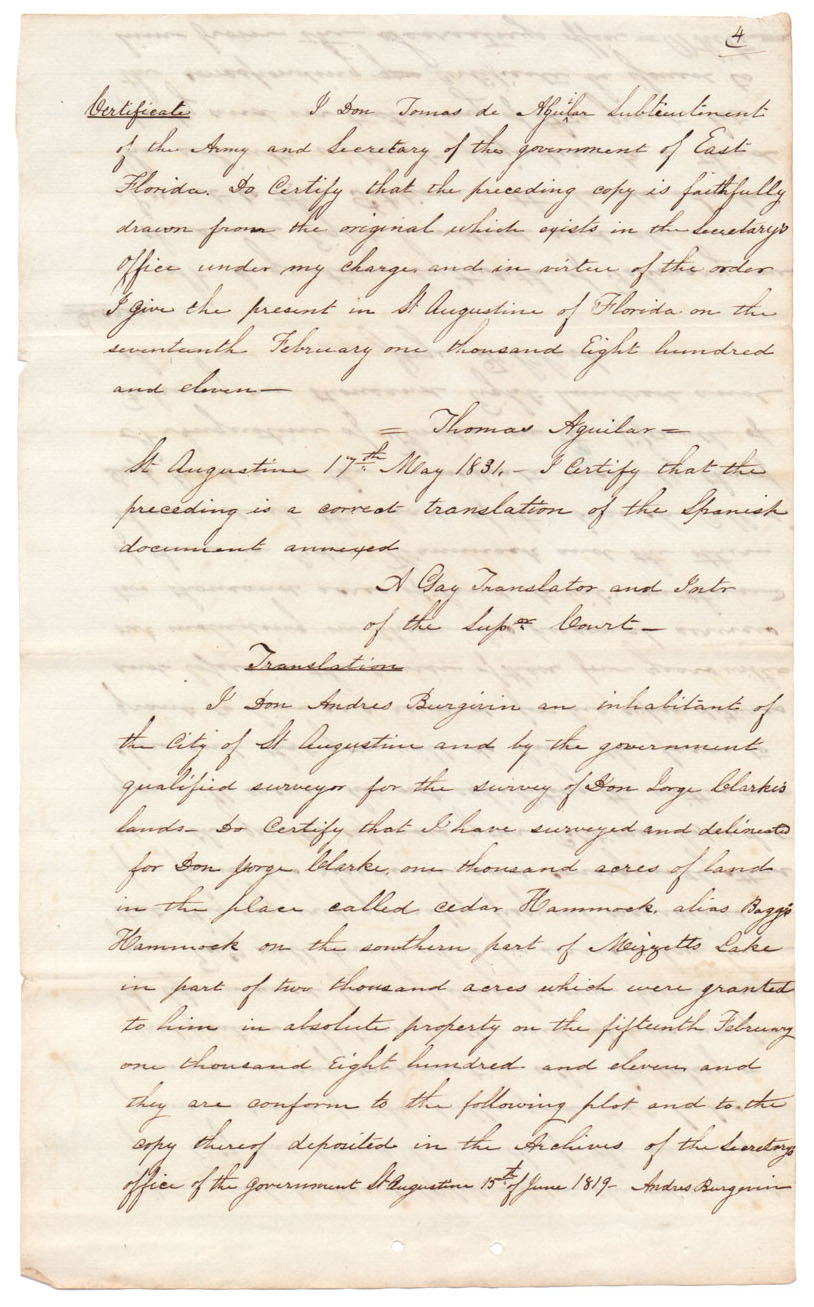 4
Certificate I Don Tomas de Aguilar Subteutinent
of the Army and Secretary of the government of East
Florida. Do Certify that the preceding copy is faithfully
drawn from the original which exists in the secretary's
Office under my charge and in virtue of the order
I give the present in St Augustine of Florida on the
seventeenth February one thousand Eight hundred
and eleven —
= Thomas Aguilar =
St Augustine 17th May 1831. - I Certify that the
preceding is a correct translation of the Spanish
document annexed
A Gay Translator and Intr
of the Supr Court —
Translation
I Don Andres Burgivin an inhabitant of
the City of St Augustine and by the government
qualified surveyor for the survey of Don Jorge Clarke's
lands - Do Certify that I have surveyed and delineated
for Don Jorge Clarke, one thousand acres of land
in the place called cedar Hammock, alias Bagg's
Hammock on the southern part of Mizzetts Lake
in part of two thousand acres which were granted
to him in absolute property on the fifteenth February
one thousand Eight hundred and eleven, and
they are conform to the following plot and to the
copy thereof deposited in the Archives of the Secretary's
office of the government St Augustine 15th of June 1819 - Andres Burgevin